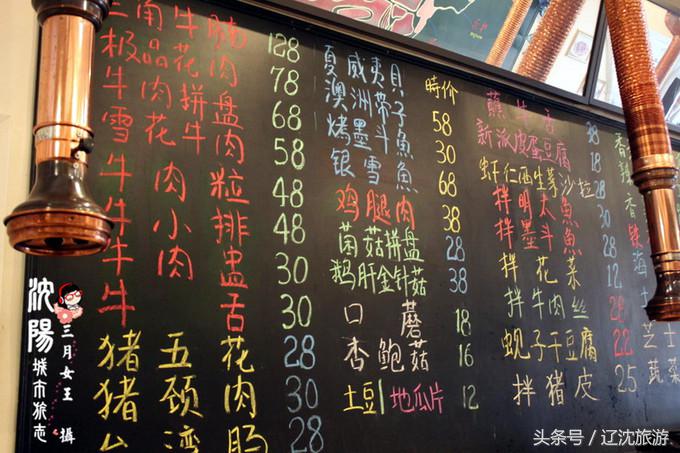 三角牛腩 128
极品花肉 78
牛肉拼盘 68
雪花牛肉 58
牛肉粒 48
牛小排 48
牛肉
牛舌 30
猪五花肉 28
猪颈肉 30
台湾肠 28
夏威夷贝 時价
澳洲带子 58
烤墨斗魚 30
银雪魚 68
鸡腿肉 38
菌菇拼盘 28
鹅肝金针菇 38
口蘑 18
杏鲍菇 16
土豆/地瓜片 12
新派皮蛋豆腐 18
虾仁酒生菜沙拉
拌明太魚
拌墨魚
拌花菜 12
拌牛肉丝 28
蚬子干豆腐 22
拌猪皮 25
香
香
铁
海
芝士
蔬菜
沈陽
城市旅志
三月女王 攝
头条号／辽沈旅游